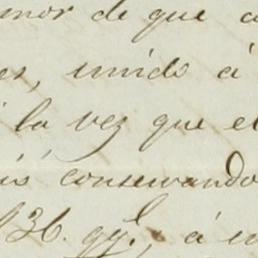 mor de que a
es, unido á
la vez que el
is conservando
136. gy.l, á